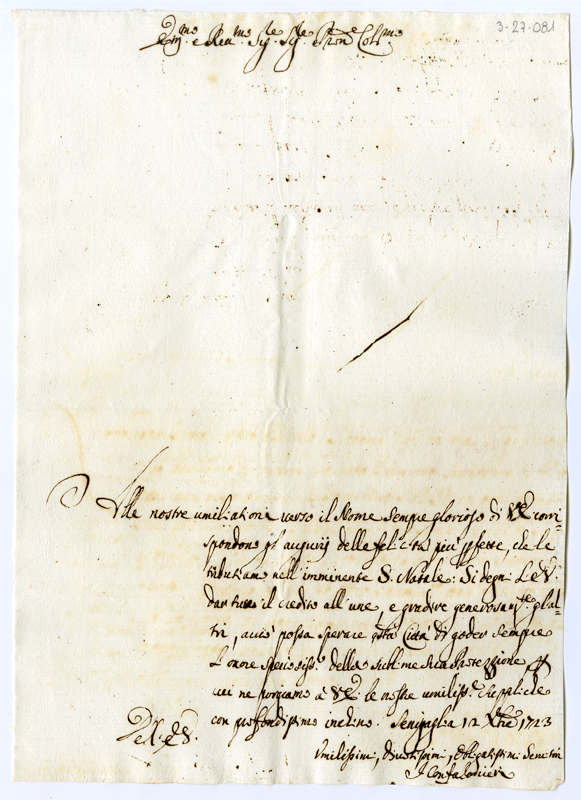 3-27-081
Em.mo e Rev.mo Sig.re Sig.re Pron.e Col.mo
Alle nostre umiliationi verso il Nome sempre glorioso di V.E. corri=
spondono gl'augurij delle felicità più pfette, che le
tributiamo nell'imminente S. Natale: Si degni L'E.V.
dar tutto il credito all'une, e gradire generosam.te gl'al-
tri, acciò possa sperare q.sta Città di goder sempre
l'onore speciosiss.o della sublime sua Protezzione p
cui ne porgiamo à V.E. le nostre umiliss.e suppliche
con profondissimo inchino. Senigaglia 12 Xbre 1723
Dell'E.V.
Umilissimi, Divotissimi, Obligatissimi Servitori
Il Confaloniere